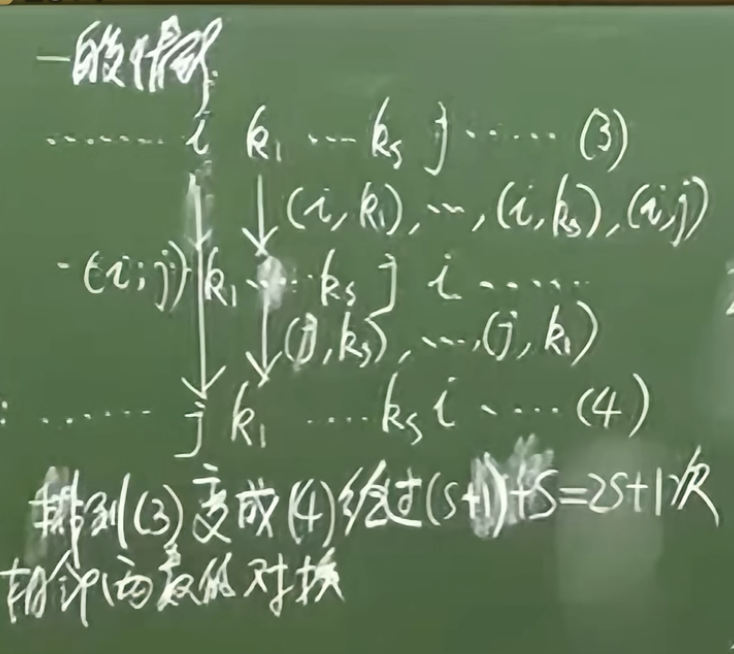 一般情形
........ i k₁ ... kₛ j ...... (3)
(i, k₁), ..., (i, kₛ), (i, j)
(i, j) k₁ ..... kₛ j i ......
(j, kₛ), ..., (j, k₁)
........ j k₁ .... kₛ i ..... (4)
排列(3)变成(4)经过(s+1)+s=2s+1次
相邻两数的对换